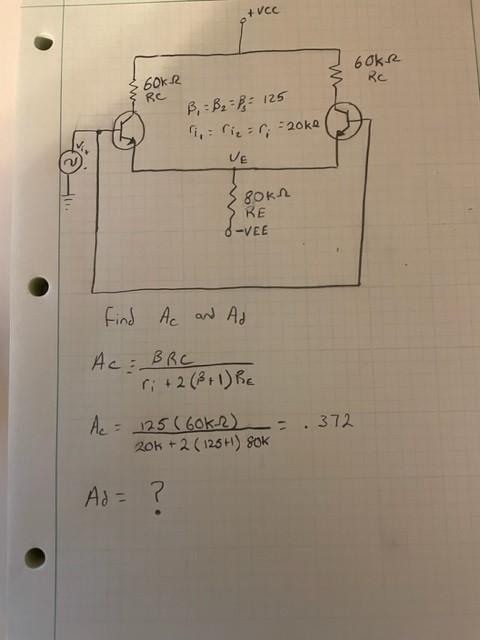 +VCC
60kΩ
RC
60kΩ
RC
β₁ = β₂ = β = 125
ri₁ = ri₂ = ri = 20kΩ
Vi
+
-
VE
80kΩ
RE
-VEE
Find Ac and Ad
Ac = BRC / ri + 2(β+1)RE
Ac = 125(60kΩ) / 20k + 2(125+1)80k = .372
Ad = ?